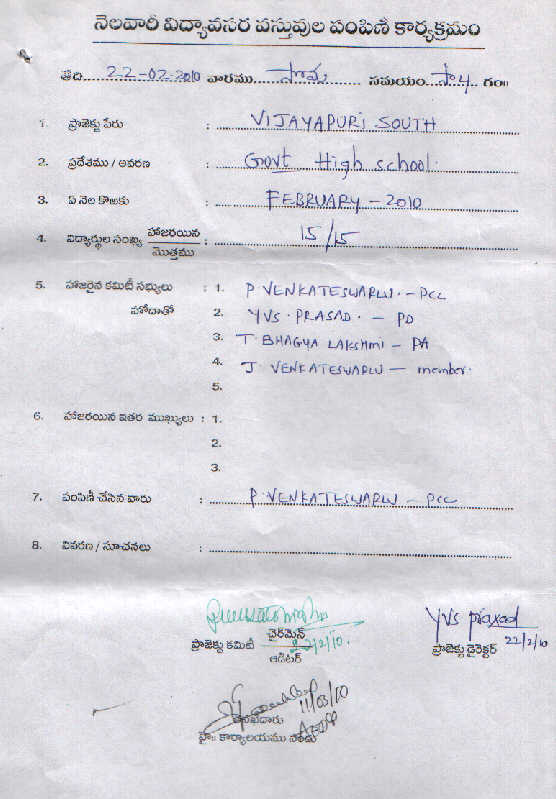 నెలవారీ విద్యావసర వస్తువుల పంపిణీ కార్యక్రమం
తేది....22-02-2010 వారము....సోమ.... సమయం..సా 4.. గం॥
1. ప్రాజెక్టు పేరు : VIJAYAPURI SOUTH
2. ప్రదేశము / ఆవరణ : Govt High school.
3. ఏ నెల కొఱకు : FEBRUARY - 2010
4. విద్యార్థుల సంఖ్య హాజరయిన / మొత్తము : 15/15
5. హాజరైన కమిటీ సభ్యులు : 1. P VENKATESWARLU. - PCC
హోదాతో 2. YVS. PRASAD. - PD
3. T. BHAGYA LAKSHMI - PA
4. J. VENKATESWARLU - member.
5.
6. హాజరయిన ఇతర ముఖ్యులు : 1.
2.
3.
7. పంపిణీ చేసిన వారు : P. VENKATESWARLU - PCC
8. వివరణ / సూచనలు :
YVS prasad
ప్రాజెక్టు కమిటీ ఛైర్మెన్ 22/2/10.
ప్రాజెక్టు డైరెక్టర్ 22/2/10
ఆడిటర్
11/03/10
తనిఖీదారు
కార్యాలయము